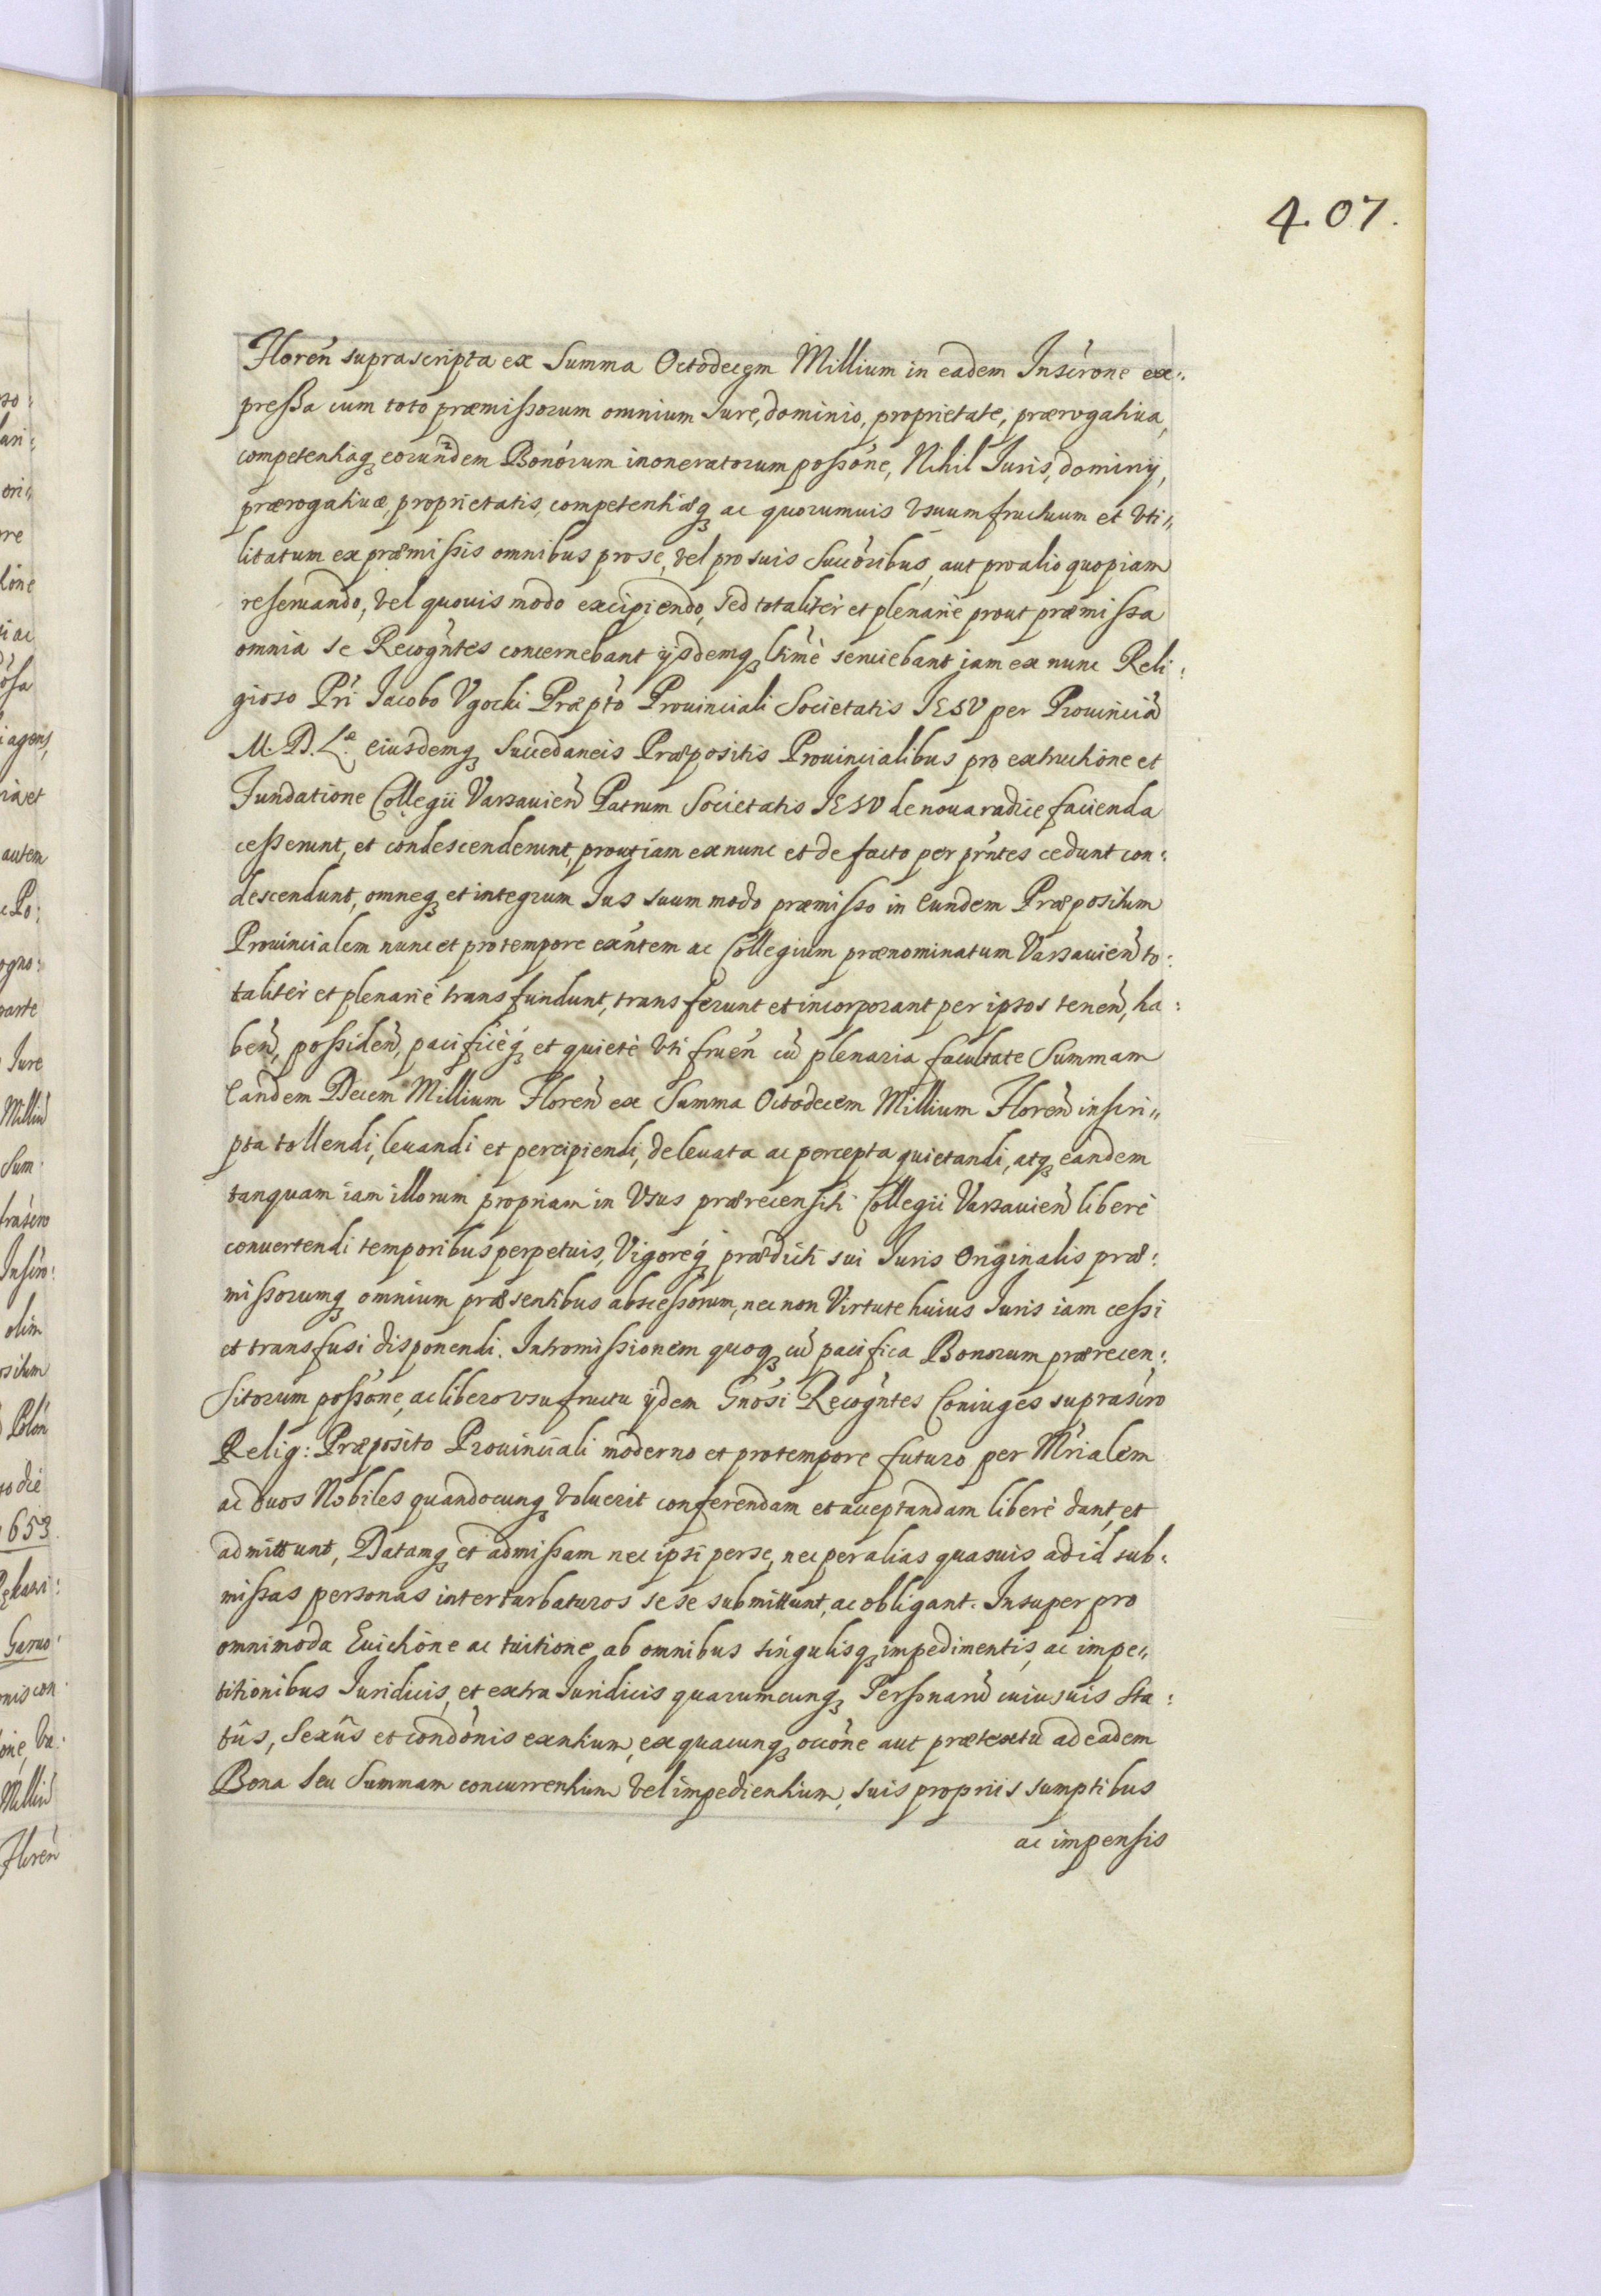 4.07.
Floren̄ suprascripta ex Summa Octodecem Millium in eadem Inscr̄one ex:
pressa cum toto præmissorum omnium Jure, dominio, proprietate, prærogatiua,
competentiaq3 eorundem Bonorum inoneratorum poss̄one, Nihil Juris, dominij,
prærogatiuæ, proprietatis, competentiæq3 ac quorumuis Vsuumfructuum et Vti„
litatum ex præmissis omnibus pro se, vel pro suis Succ̄oribus, aut pro alio quopiam
reseruando, vel quouis modo excipiendo, sed totalitèr et plenariè prout præmissa
omnia se Recogn̄tes concernebant ijsdemq3 ltimè seruiebant iam ex nunc Reli:
gioso Pr̄i Jacobo Vgocki Præpt̄o Prouinciali Societatis JESV per Prouinciā
M. D. L.æ eiusdemq3 Succedaneis Præpositis Prouincialibus pro extructione et
Fundatione Collegii Varsauien̄ Patrum Societatis JESV de noua radice facienda
cesserunt, et condescenderunt, prout iam ex nunc et de facto per pr̄ntes cedunt con:
descendunt, omneq3 et integrum Jus suum modo præmisso in Eundem Præpositum
Prouincialem nunc et pro tempore exn̄tem ac Collegium prænominatum Varsauien̄ to:
talitèr et plenariè transfundunt, transferunt et incorporant per ipsos tenen̄, ha:
ben̄, possiden̄, pacificèq3 et quietè Vti fruen̄ cū plenaria facultate Summam
Eandem Decem Millium Floren̄ ex Summa Octodecem Millium Floren̄ inscri„
pta tollendi, leuandi et percipiendi, de leuata ac percepta quietandi, atq3 eandem
tanquam iam illorum propriam in Vsus prærecensiti Collegii Varsauien̄ liberè
conuertendi temporibus perpetuis, Vigoreq3 prædicti sui Juris Originalis præ:
missorumq3 omnium præsentibus abscessorum, nec non Virtute huius Juris iam cessi
et transfusi disponendi. Intromissionem quoq3 cū pacifica Bonorum prærecen:
sitorum poss̄one, ac libero vsufructu ijdem Gn̄osi Recogn̄tes Coniuges suprascr̄o
Relig: Præposito Prouinciali moderno et pro tempore futuro per Mr̄ialem
ac duos Nobiles quandocunq3 voluerit conferendam et acceptandam liberè dant, et
admittunt, Datamq3 et admissam nec ipsi per se, nec per alias quasuis ad id sub:
missas personas interturbaturos sese submittunt, ac obligant. Insuper pro
omnimoda Euictione ac tuitione ab omnibus singulisq3 impedimentis, ac impe„
titionibus Juridicis, et extra Juridicis quarumcunq3 Personarū cuiusuis sta:
tûs, Sexûs et cond̄onis exn̄tium, ex quacunq3 occ̄one aut prætextu ad eadem
Bona seu Summam concurrentium vel impedientium, suis proprijs sumptibus
ac impensis